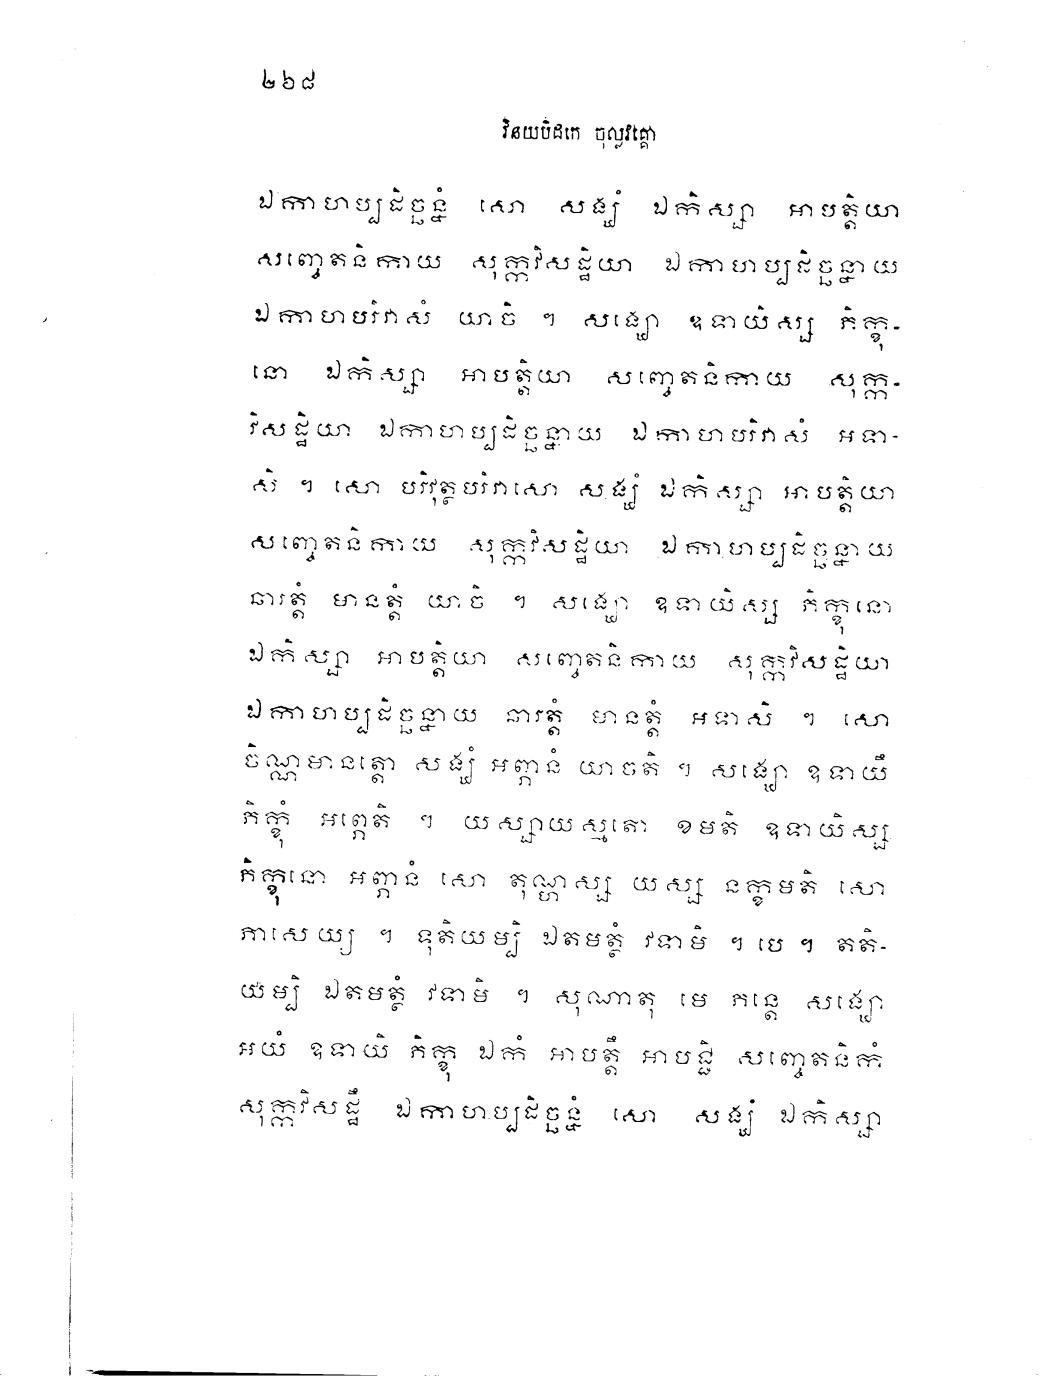 ២៦៨
វិនយបិដកេ ចុល្លវគ្គោ
ឯកាហប្បដិច្ឆន្នំ សោ សង្ឃំ ឯកិស្សា អាបត្តិយា
សញ្ចេតនិកាយ សុក្កវិសដ្ឋិយា ឯកាហប្បដិច្ឆន្នាយ
ឯកាហបរិវាសំ យាចិ ។ សង្ឃោ ឧទាយិស្ស ភិក្ខុ-
នោ ឯកិស្សា អាបត្តិយា សញ្ចេតនិកាយ សុក្ក-
វិសដ្ឋិយា ឯកាហប្បដិច្ឆន្នាយ ឯកាហបរិវាសំ អទា-
សិ ។ សោ បរិវុត្ថបរិវាសោ សង្ឃំ ឯកិស្សា អាបត្តិយា
សញ្ចេតនិកាយ សុក្កវិសដ្ឋិយា ឯកាហប្បដិច្ឆន្នាយ
ឆារត្តំ មានត្តំ យាចិ ។ សង្ឃោ ឧទាយិស្ស ភិក្ខុនោ
ឯកិស្សា អាបត្តិយា សញ្ចេតនិកាយ សុក្កវិសដ្ឋិយា
ឯកាហប្បដិច្ឆន្នាយ ឆារត្តំ មានត្តំ អទាសិ ។ សោ
ចិណ្ណមានត្តោ សង្ឃំ អព្ភានំ យាចតិ ។ សង្ឃោ ឧទាយឹ
ភិក្ខុំ អព្ភេតិ ។ យស្សាយស្មតោ ខមតិ ឧទាយិស្ស
ភិក្ខុនោ អព្ភានំ សោ តុណ្ហស្ស យស្ស នក្ខមតិ សោ
ភាសេយ្យ ។ ទុតិយម្បិ ឯតមត្ថំ វទាមិ ។ បេ ។ តតិ-
យម្បិ ឯតមត្ថំ វទាមិ ។ សុណាតុ មេ ភន្តេ សង្ឃោ
អយំ ឧទាយិ ភិក្ខុ ឯកំ អាបត្តឹ អាបជ្ជិ សញ្ចេតនិកំ
សុក្កវិសដ្ឋឹ ឯកាហប្បដិច្ឆន្នំ សោ សង្ឃំ ឯកិស្សា